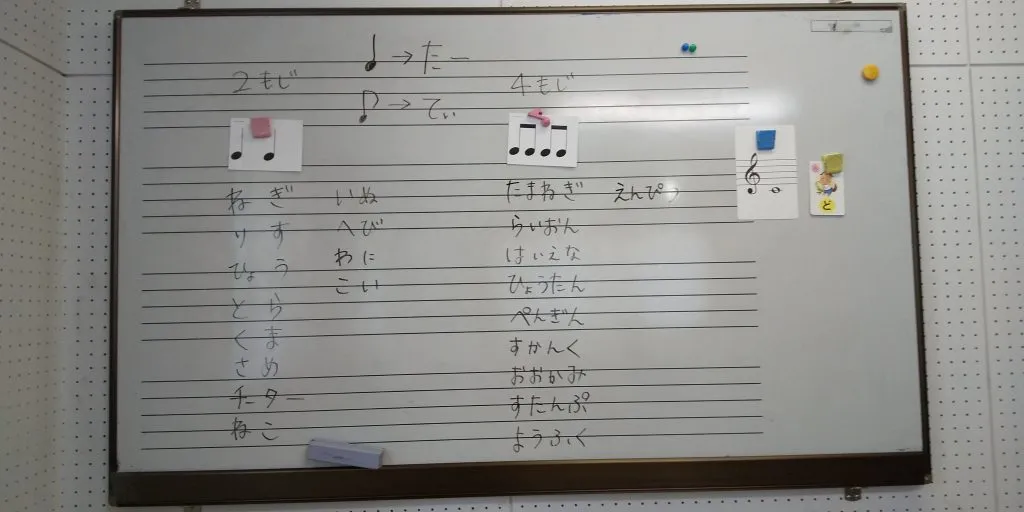 ♩→たー
2もじ
4もじ
♪→てぃ
ねぎ
りす
ひょう
とら
くま
さめ
チーター
ねこ
いぬ
へび
わに
こい
たまねぎ
らいおん
はいえな
ひょうたん
ぺんぎん
すかんく
おおかみ
すたんぷ
ようふく
えんぴつ
ど